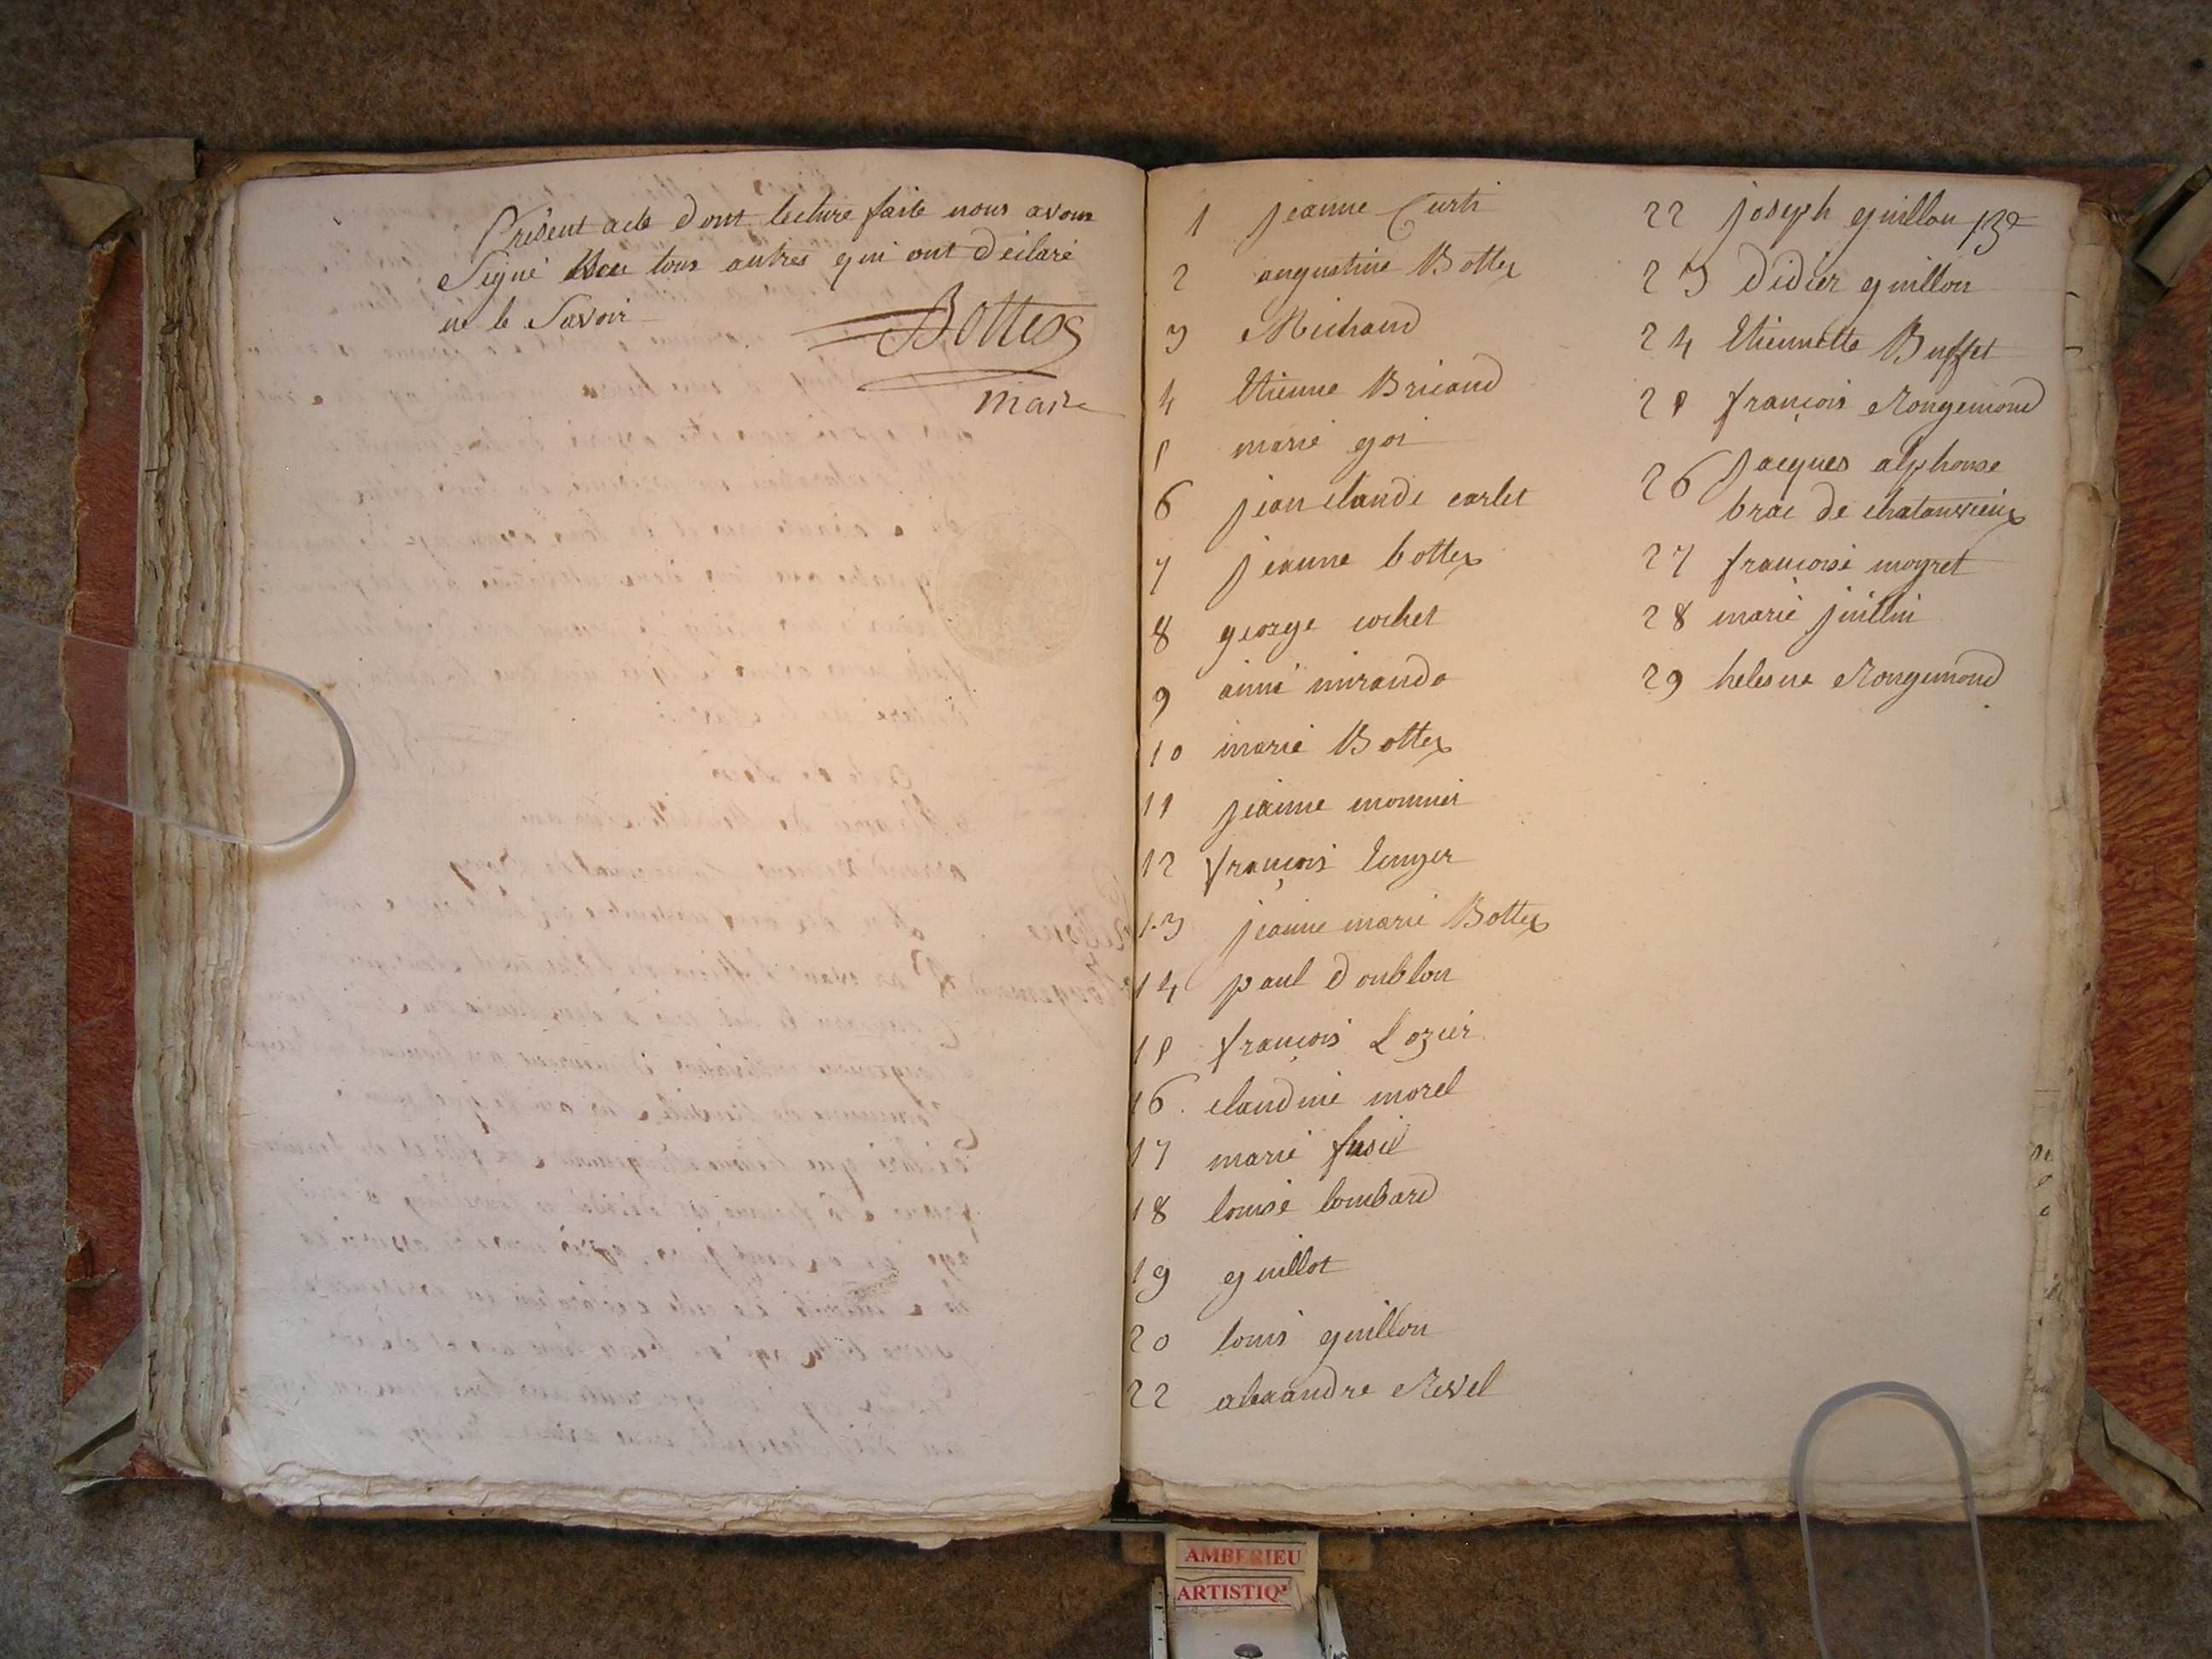 Présent acte dont lecture faite nous avons
Signé tous autres qui ont déclaré
ne le Savoir
Bottex
maire
1 jeanne Curti
2 augustine Bottex
3 Michaud
4 Etienne Bricaud
5 marie goi
6 jean claude carlet
7 jeanne bottex
8 george cochet
9 anne mirando
10 marie Bottex
11 jeanne monnier
12 françois
13 jeanne marie Bottex
14 paul doublon
15 françois Lozier
16. claudine morel
17 marie fusil
18 louise lombard
19 guillot
20 louis guillon
22 alexandre Revel
22 joseph guillon 132
23 didier guillon
24 Etiennette Buffet
25 françois Rongemond
26 jacques alphonse
brac de chatauvieux
27 françoise moyret
28 marie juillin
29 helesne Rongemond
AMBERIEU
ARTISTIQ